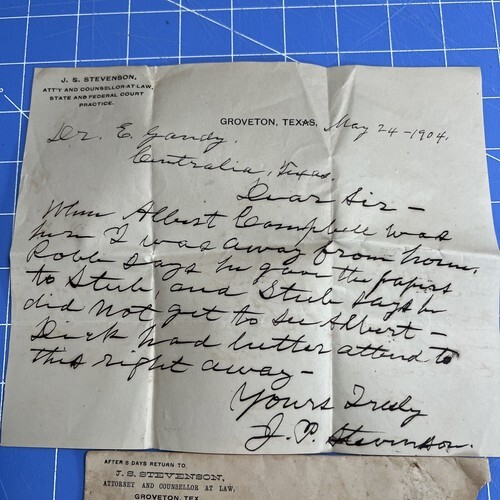 J. S. STEVENSON,
ATT'Y AND COUNSELLOR-AT LAW,
STATE AND FEDERAL COURT
PRACTICE.
GROVETON, TEXAS, May 24-1904.
Dr. E. Gandy.
Centralia, Texas.
Dear Sir-
When Albert Campbell was
here I was away from home,
Robb says he gave the papers
to Steele and Steele says he
did not get to see Albert-
Dick had better attend to
this right away-
Yours Truly
J. S. Stevenson.
AFTER 5 DAYS RETURN TO
J. S. STEVENSON,
ATTORNEY AND COUNSELLOR AT LAW,
GROVETON, TEX.